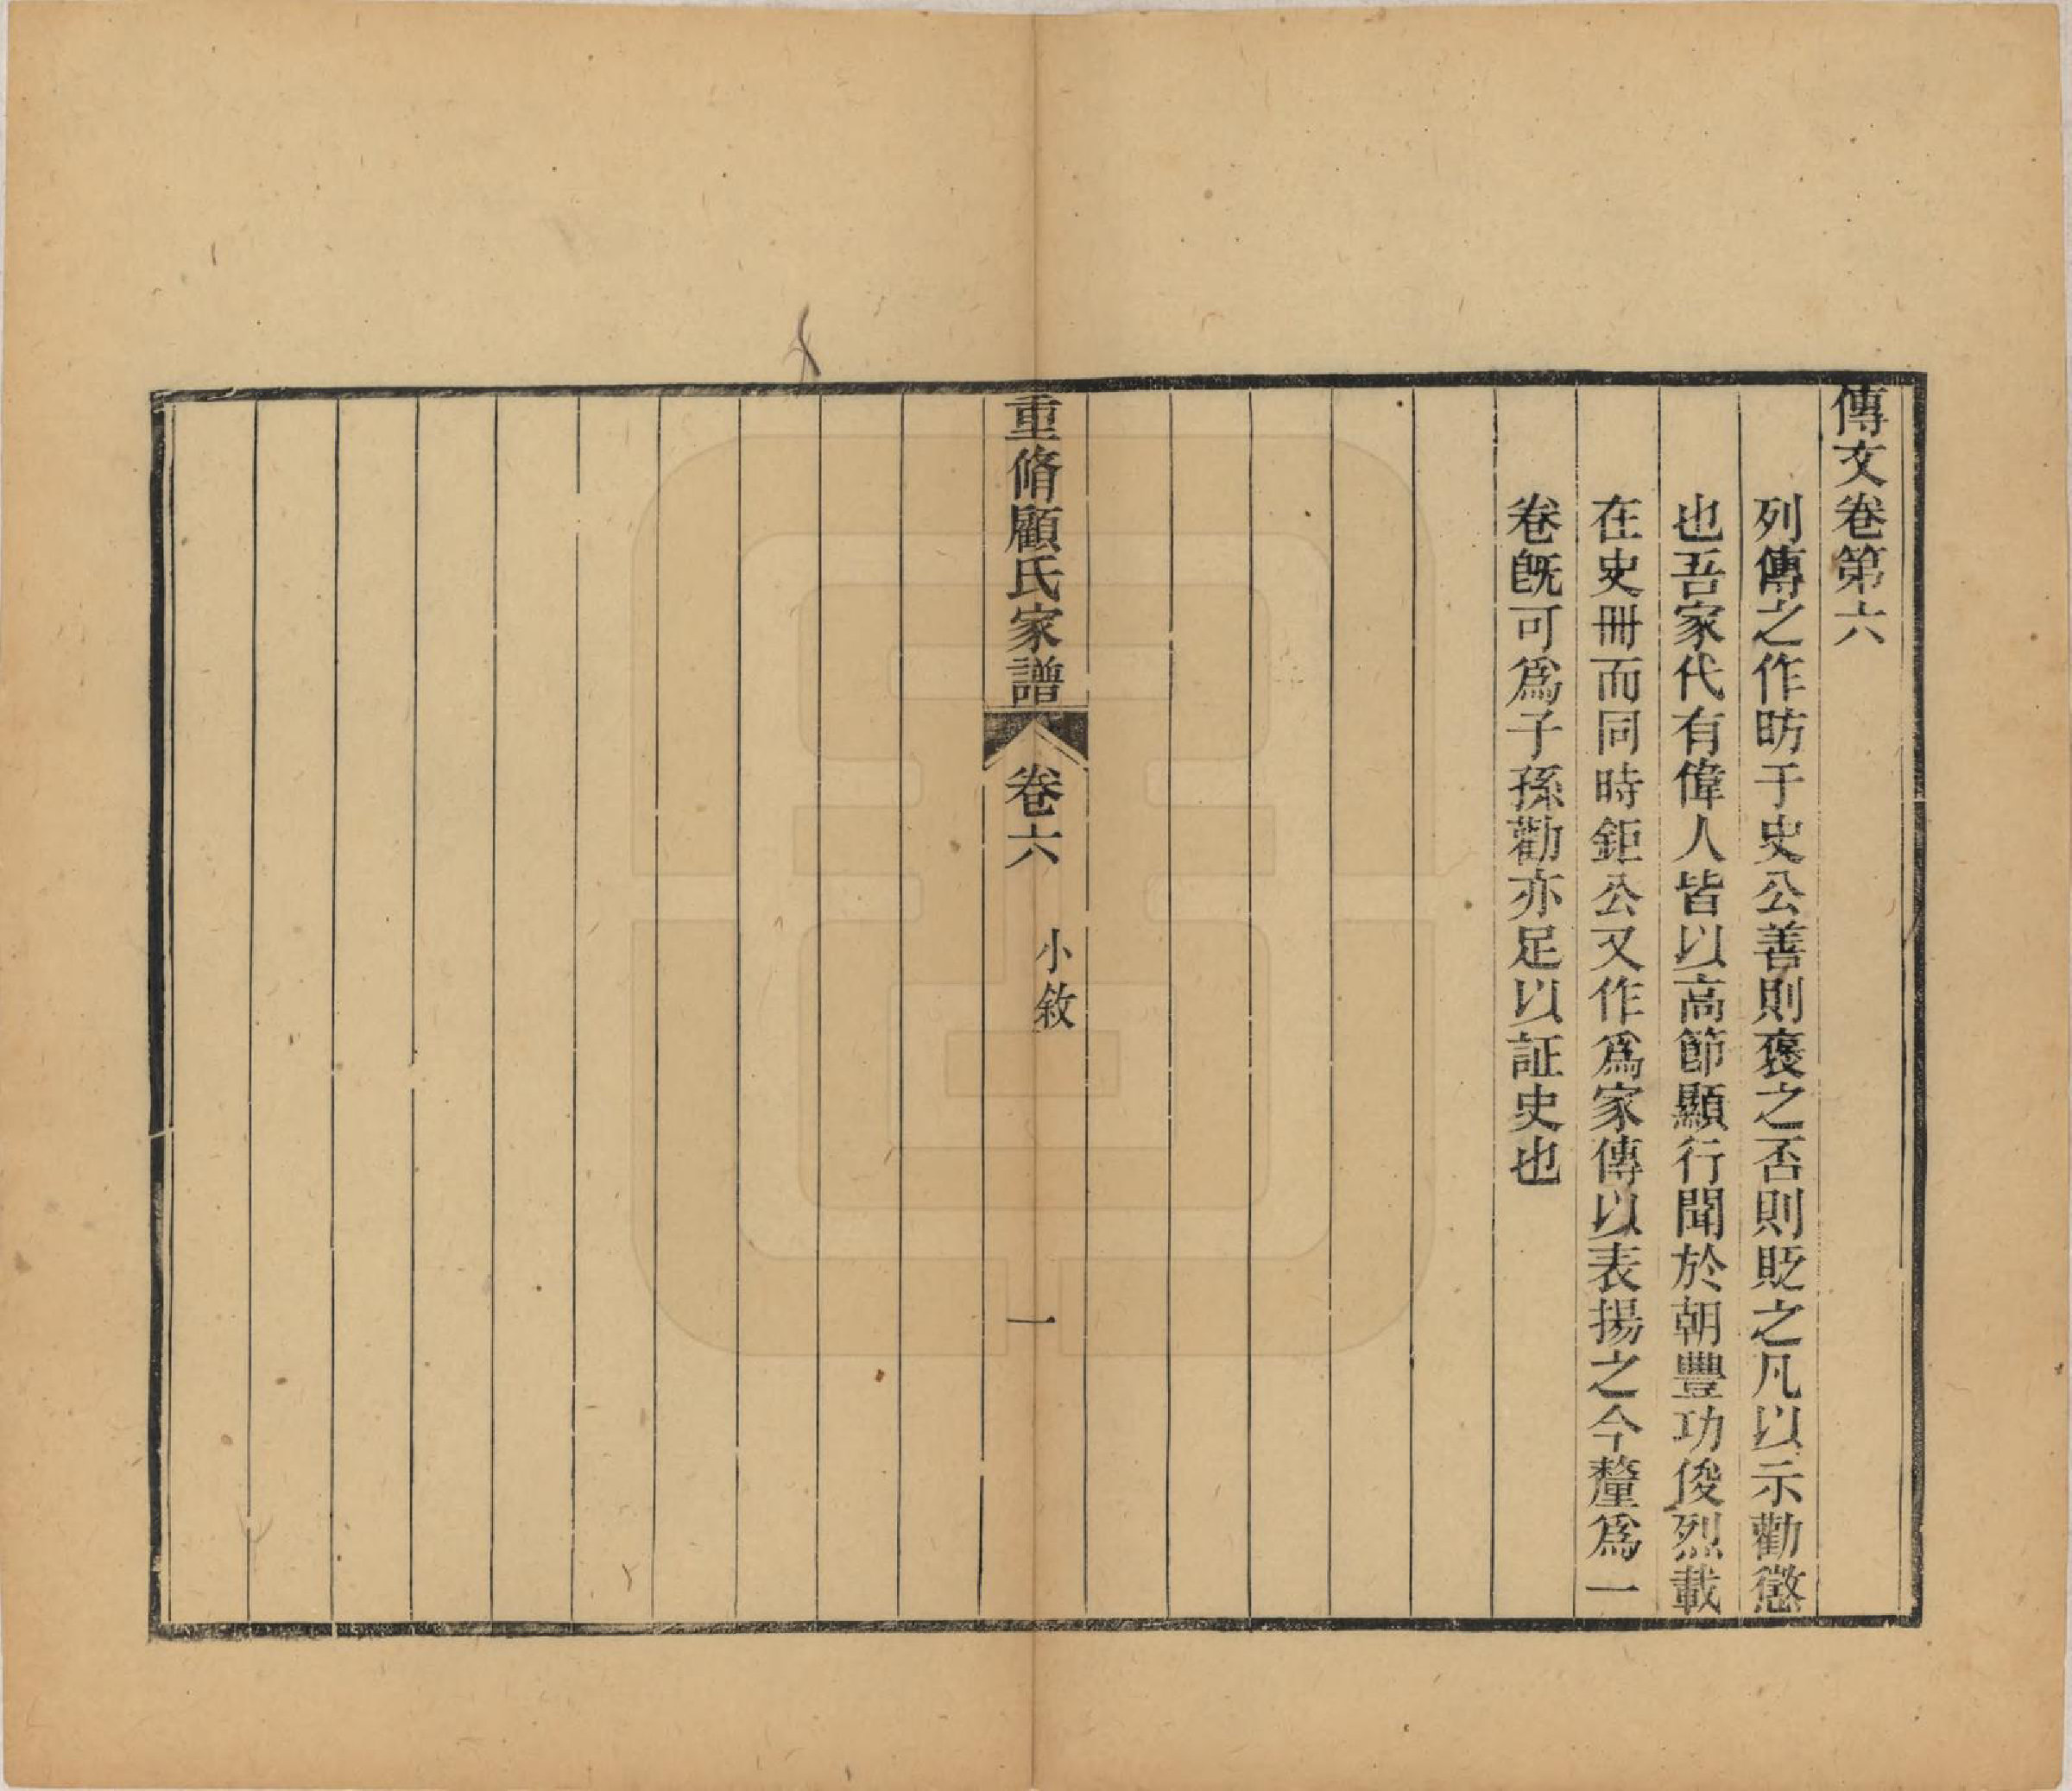 傳文卷第六
列傳之作昉于史公善則褒之否則貶之凡以示勸懲
也吾家代有偉人皆以高節顯行聞於朝豐功俊烈載
在史冊而同時鉅公又作爲家傳以表揚之今釐爲一
卷旣可爲子孫勸亦足以証史也
重脩顧氏家譜
卷六
小敘
一